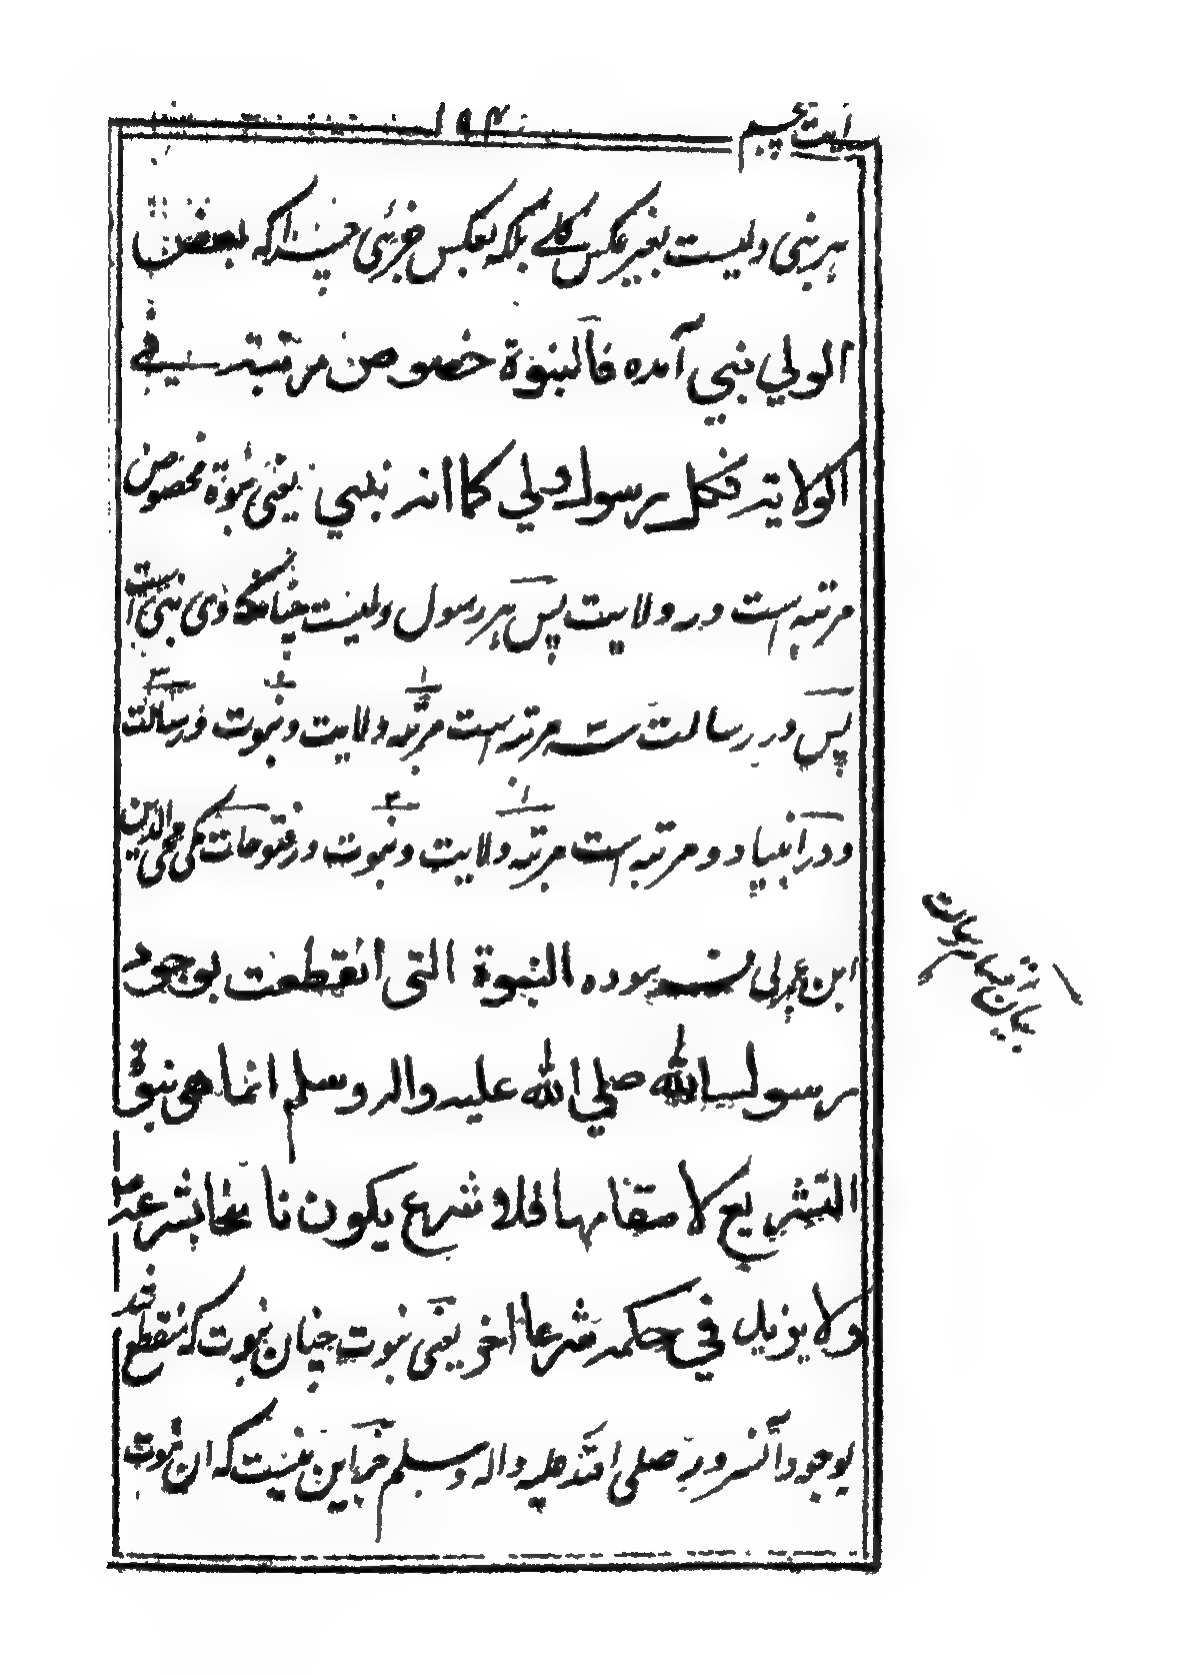 آیت پنجم
۱۹۴
هر نبی ولیست بغیر عکس کلے بلکه بعکس جزئی چنداکه بعض
الولي نبي آمده فالنبوة خصوص مرتبته في
الولايته فكل رسول ولي كما انه نبي یعنی نبوة مخصوص
مرتبه است در ولایت پس هر رسول ولیست چنانکه وی نبی است
پس در رسالت سه مرتبه است مرتبه ولایت و نبوت و رسالت
و در انبیاء دو مرتبه است مرتبه ولایت و نبوت در فتوحات مکی محی الدین
ابن عربی فرموده النبوة التی انقطعت بوجود
رسول الله صلي الله علیه واله وسلم انما هی نبوة
التشریع لا مقامها فلا شرع یکون ناسخا بشرعه
ولا یزیل في حکمه شرعا اخر یعنی نبوت چنان نبوت که منقطع شد
بوجود آنسرور صلی الله علیه واله وسلم جز این نیست که ان نبوت
بیان